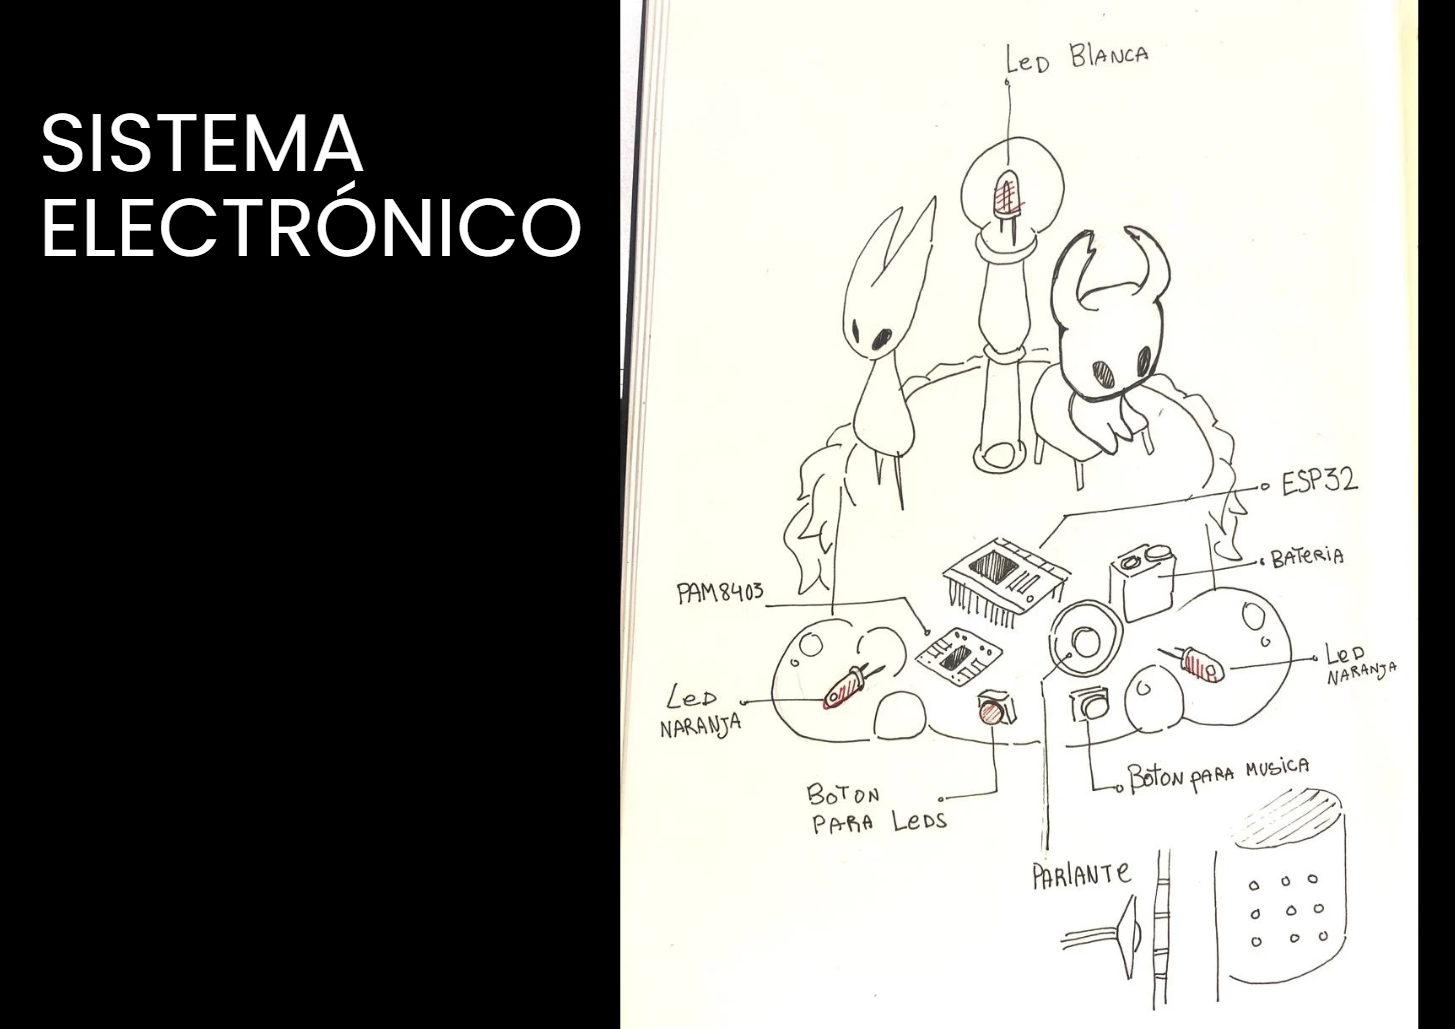 SISTEMA
ELECTRÓNICO
LeD BlANCA
ESP32
BATeRIA
PAM8403
LeD
NARANJA
LeD
NARANJA
BoToN PARA MUSICA
BoToN
PARA LeDS
PARlANTe